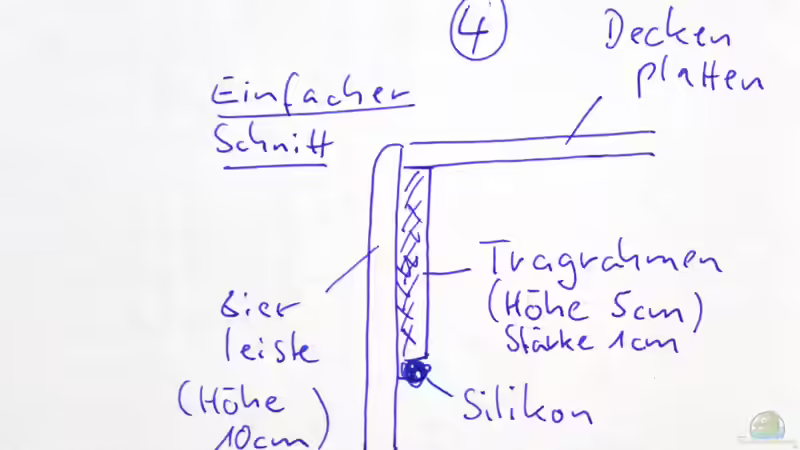 4
Decken
platten
Einfacher
Schnitt
Tragrahmen
(Höhe 5cm)
Stärke 1cm
Zier
leiste
(Höhe
10cm)
Silikon